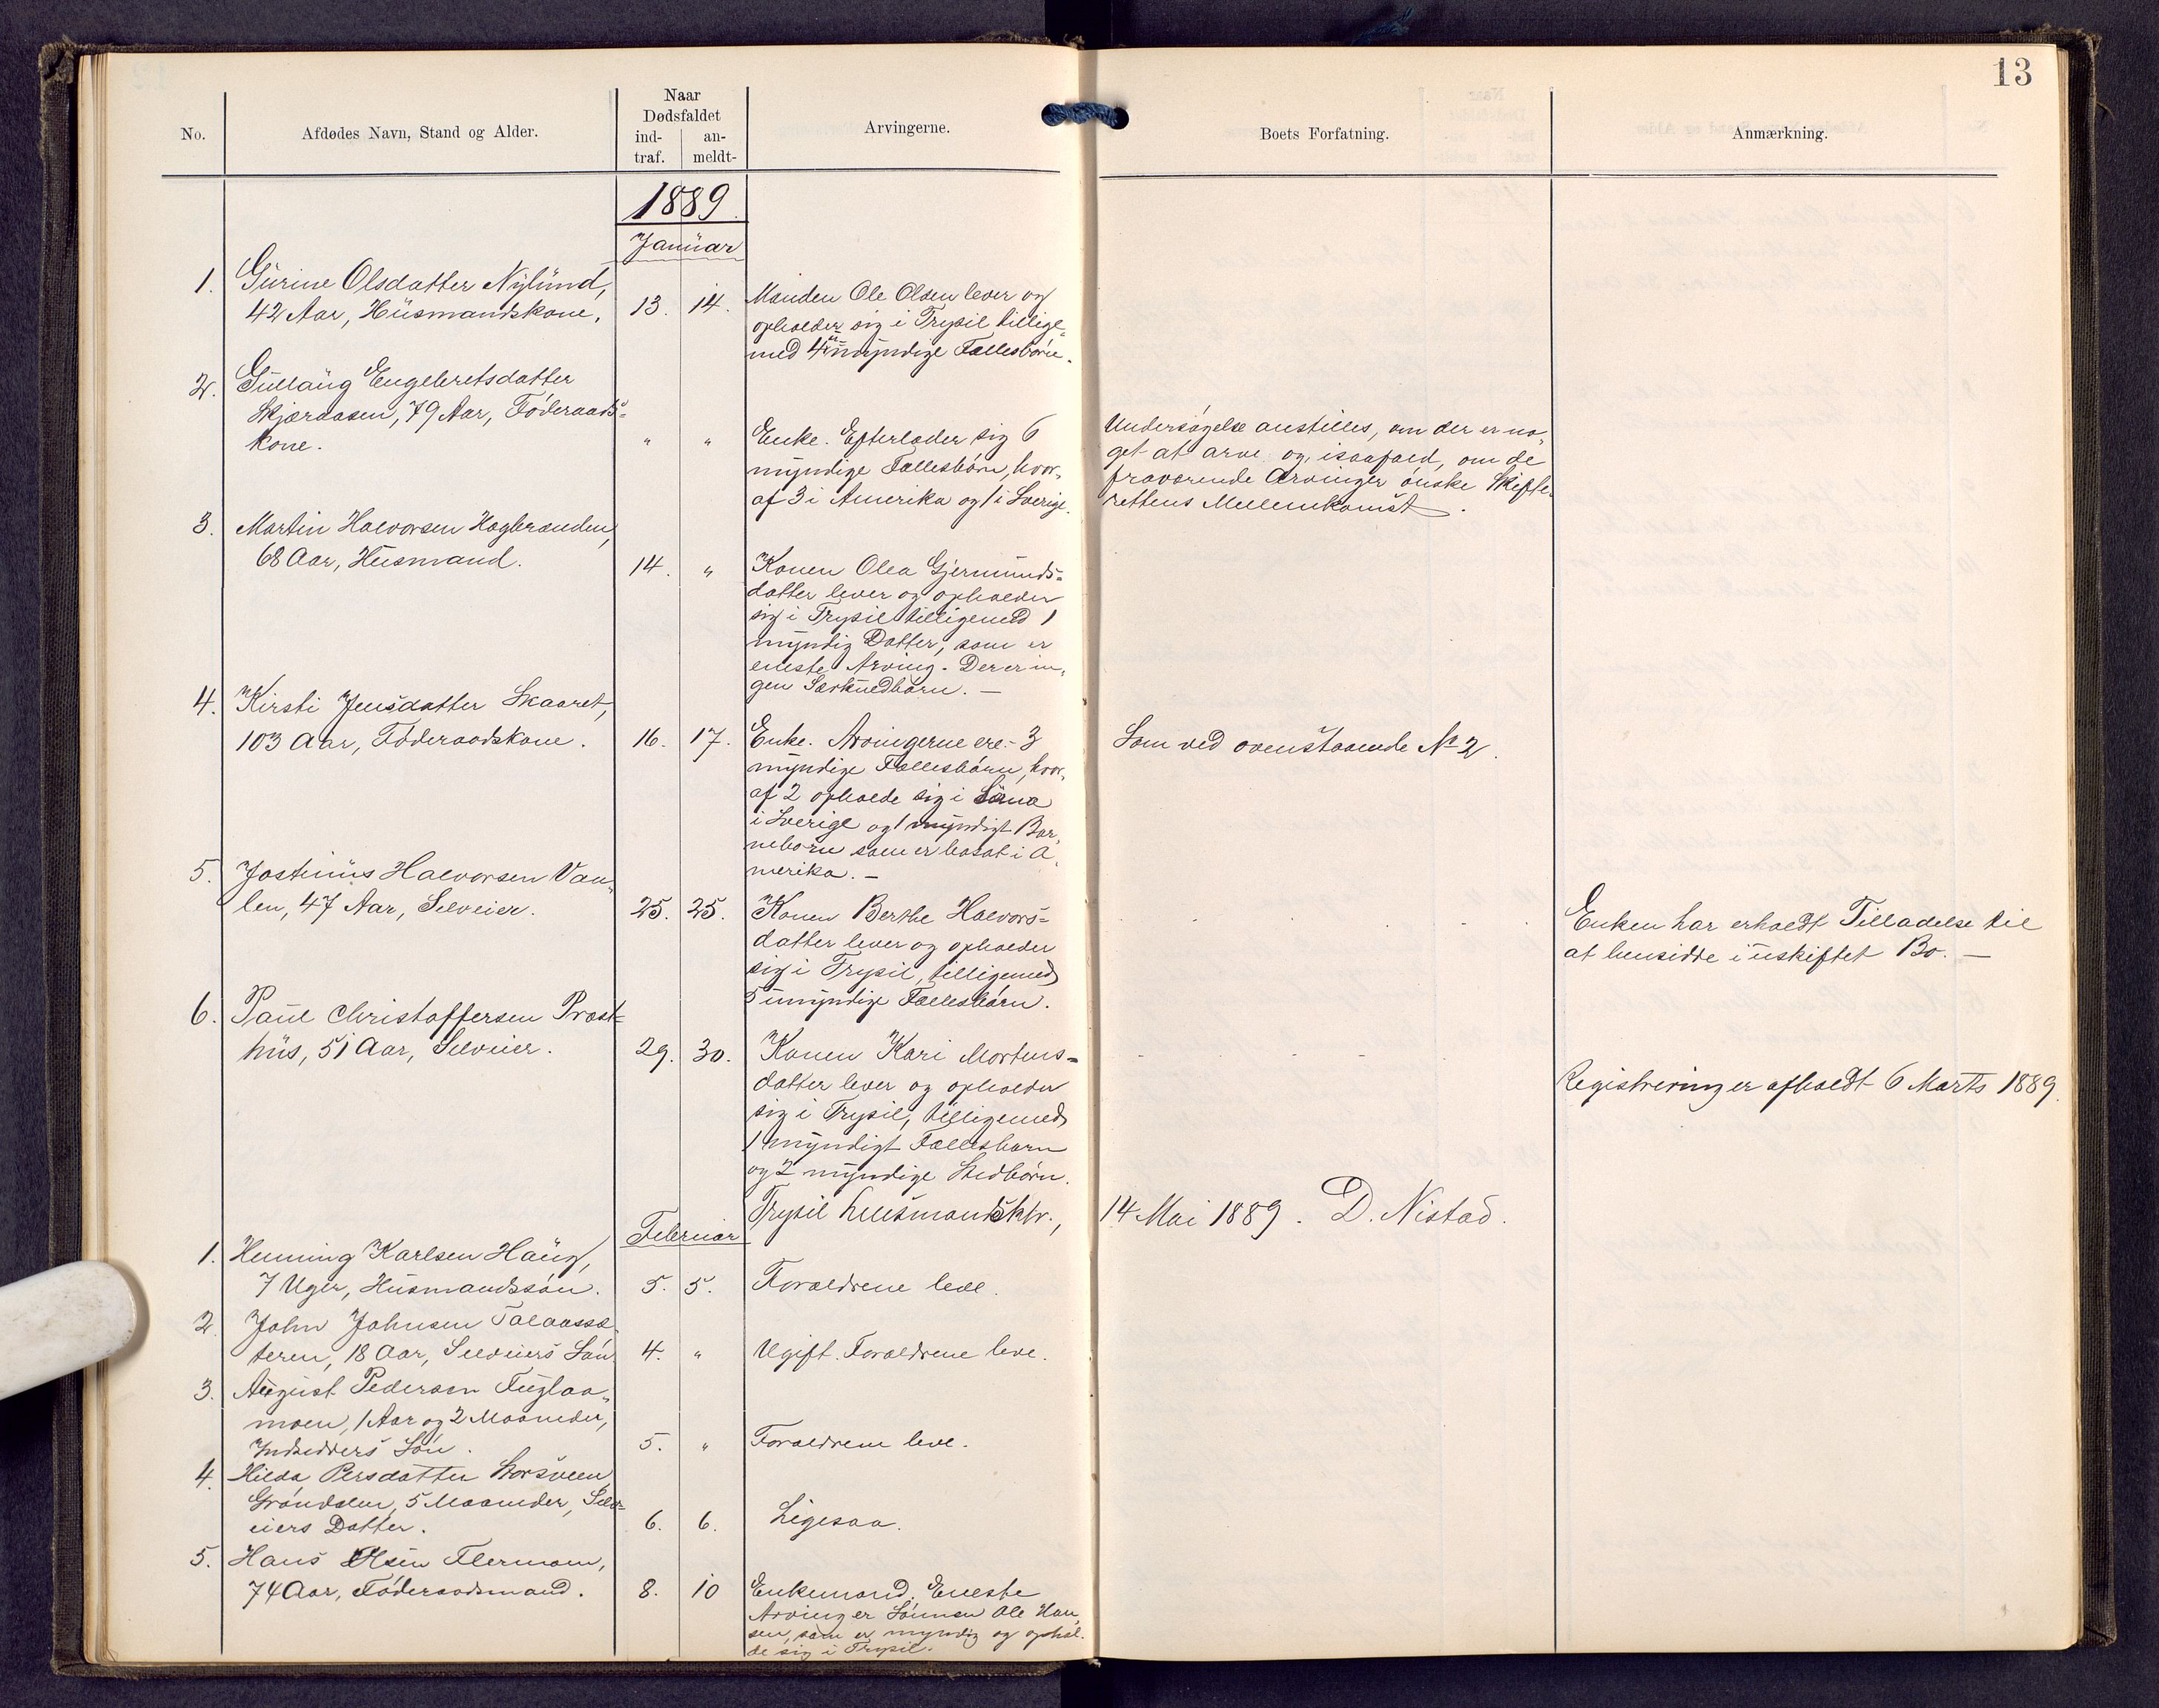 13
No.
Afdødes Navn, Stand og Alder.
Naar
Dødsfaldet
ind-
traf.
an-
meldt-
Arvingerne.
Boets Forfatning.
Anmærkning.
1889.
Januar
1. Gurine Olsdatter Nylund,
42 Aar, Husmandskone, 13. 14.
Manden Ole Olsen lever og
opholder sig i Trysil tillige-
med 4 umyndige Fællesbørn.
2. Gullaug Engebretsdatter
Skjæraasen, 79 Aar, Føderaads-
kone. " "
Enke. Efterlader sig 6
myndige Fællesbørn, hvor-
af 3 i Amerika og 1 i Sverige.
Undersøgelse anstilles, om der er no-
get at arve og, isaafald, om de
fraværende Arvinger ønske Skifte-
rettens Mellemkomst.
3. Martin Halvorsen Hagbranden,
68 Aar, Husmand. 14. "
Konen Olea Gjermunds-
datter lever og opholder
sig i Trysil tilligemed 1
myndig Datter, som er
eneste Arving. Der er in-
gen Særkuldbørn. —
4. Kirsti Jensdatter Skaaret,
103 Aar, Føderaadskone. 16. 17.
Enke. Arvingerne ere:- 3
myndige Fællesbørn, hvor-
af 2 opholde sig i Särna
i Sverige og 1 myndigt Bar-
nebarn som er bosat i A-
merika. —
Som ved ovenstaaende No 2.
5. Jostinus Halvorsen Van-
len, 47 Aar, Selveier. 25. 25.
Konen Berthe Halvors-
datter lever og opholder
sig i Trysil, tilligemed
5 umyndige Fællesbørn.
Enken har erholdt Tilladelse til
at hensidde i uskiftet Bo. —
6. Paul Christoffersen Præst-
hus, 51 Aar, Selveier. 29. 30.
Konen Kari Mortens-
datter lever og opholder
sig i Trysil, tilligemed
1 myndigt Fællesbarn
og 2 myndige Stedbørn.
Registrering er afholdt 6 Marts 1889.
Trysil Lensmandsktr., 14 Mai 1889. D. Nistad.
Februar
1. Henning Karlsen Haug,
7 Uger, Husmandssøn. 5. 5. Forældrene leve.
2. John Johnsen Talaassæ-
teren, 18 Aar, Selveiers Søn 4. " Ugift. Forældrene leve.
3. August Pedersen Fuglaa-
moen, 1 Aar og 2 Maaneder,
Indsidders Søn. 5. " Forældrene leve.
4. Hilda Persdatter Storsveen
Grøndalen, 5 Maaneder, Selv-
eiers Datter. 6. 6. Ligesaa.
5. Hans Olsen Flermoen,
74 Aar, Føderaadsmand. 8. 10
Enkemand. Eneste
Arving er Sønnen Ole Han-
sen, som er myndig og ophol-
de sig i Trysil.